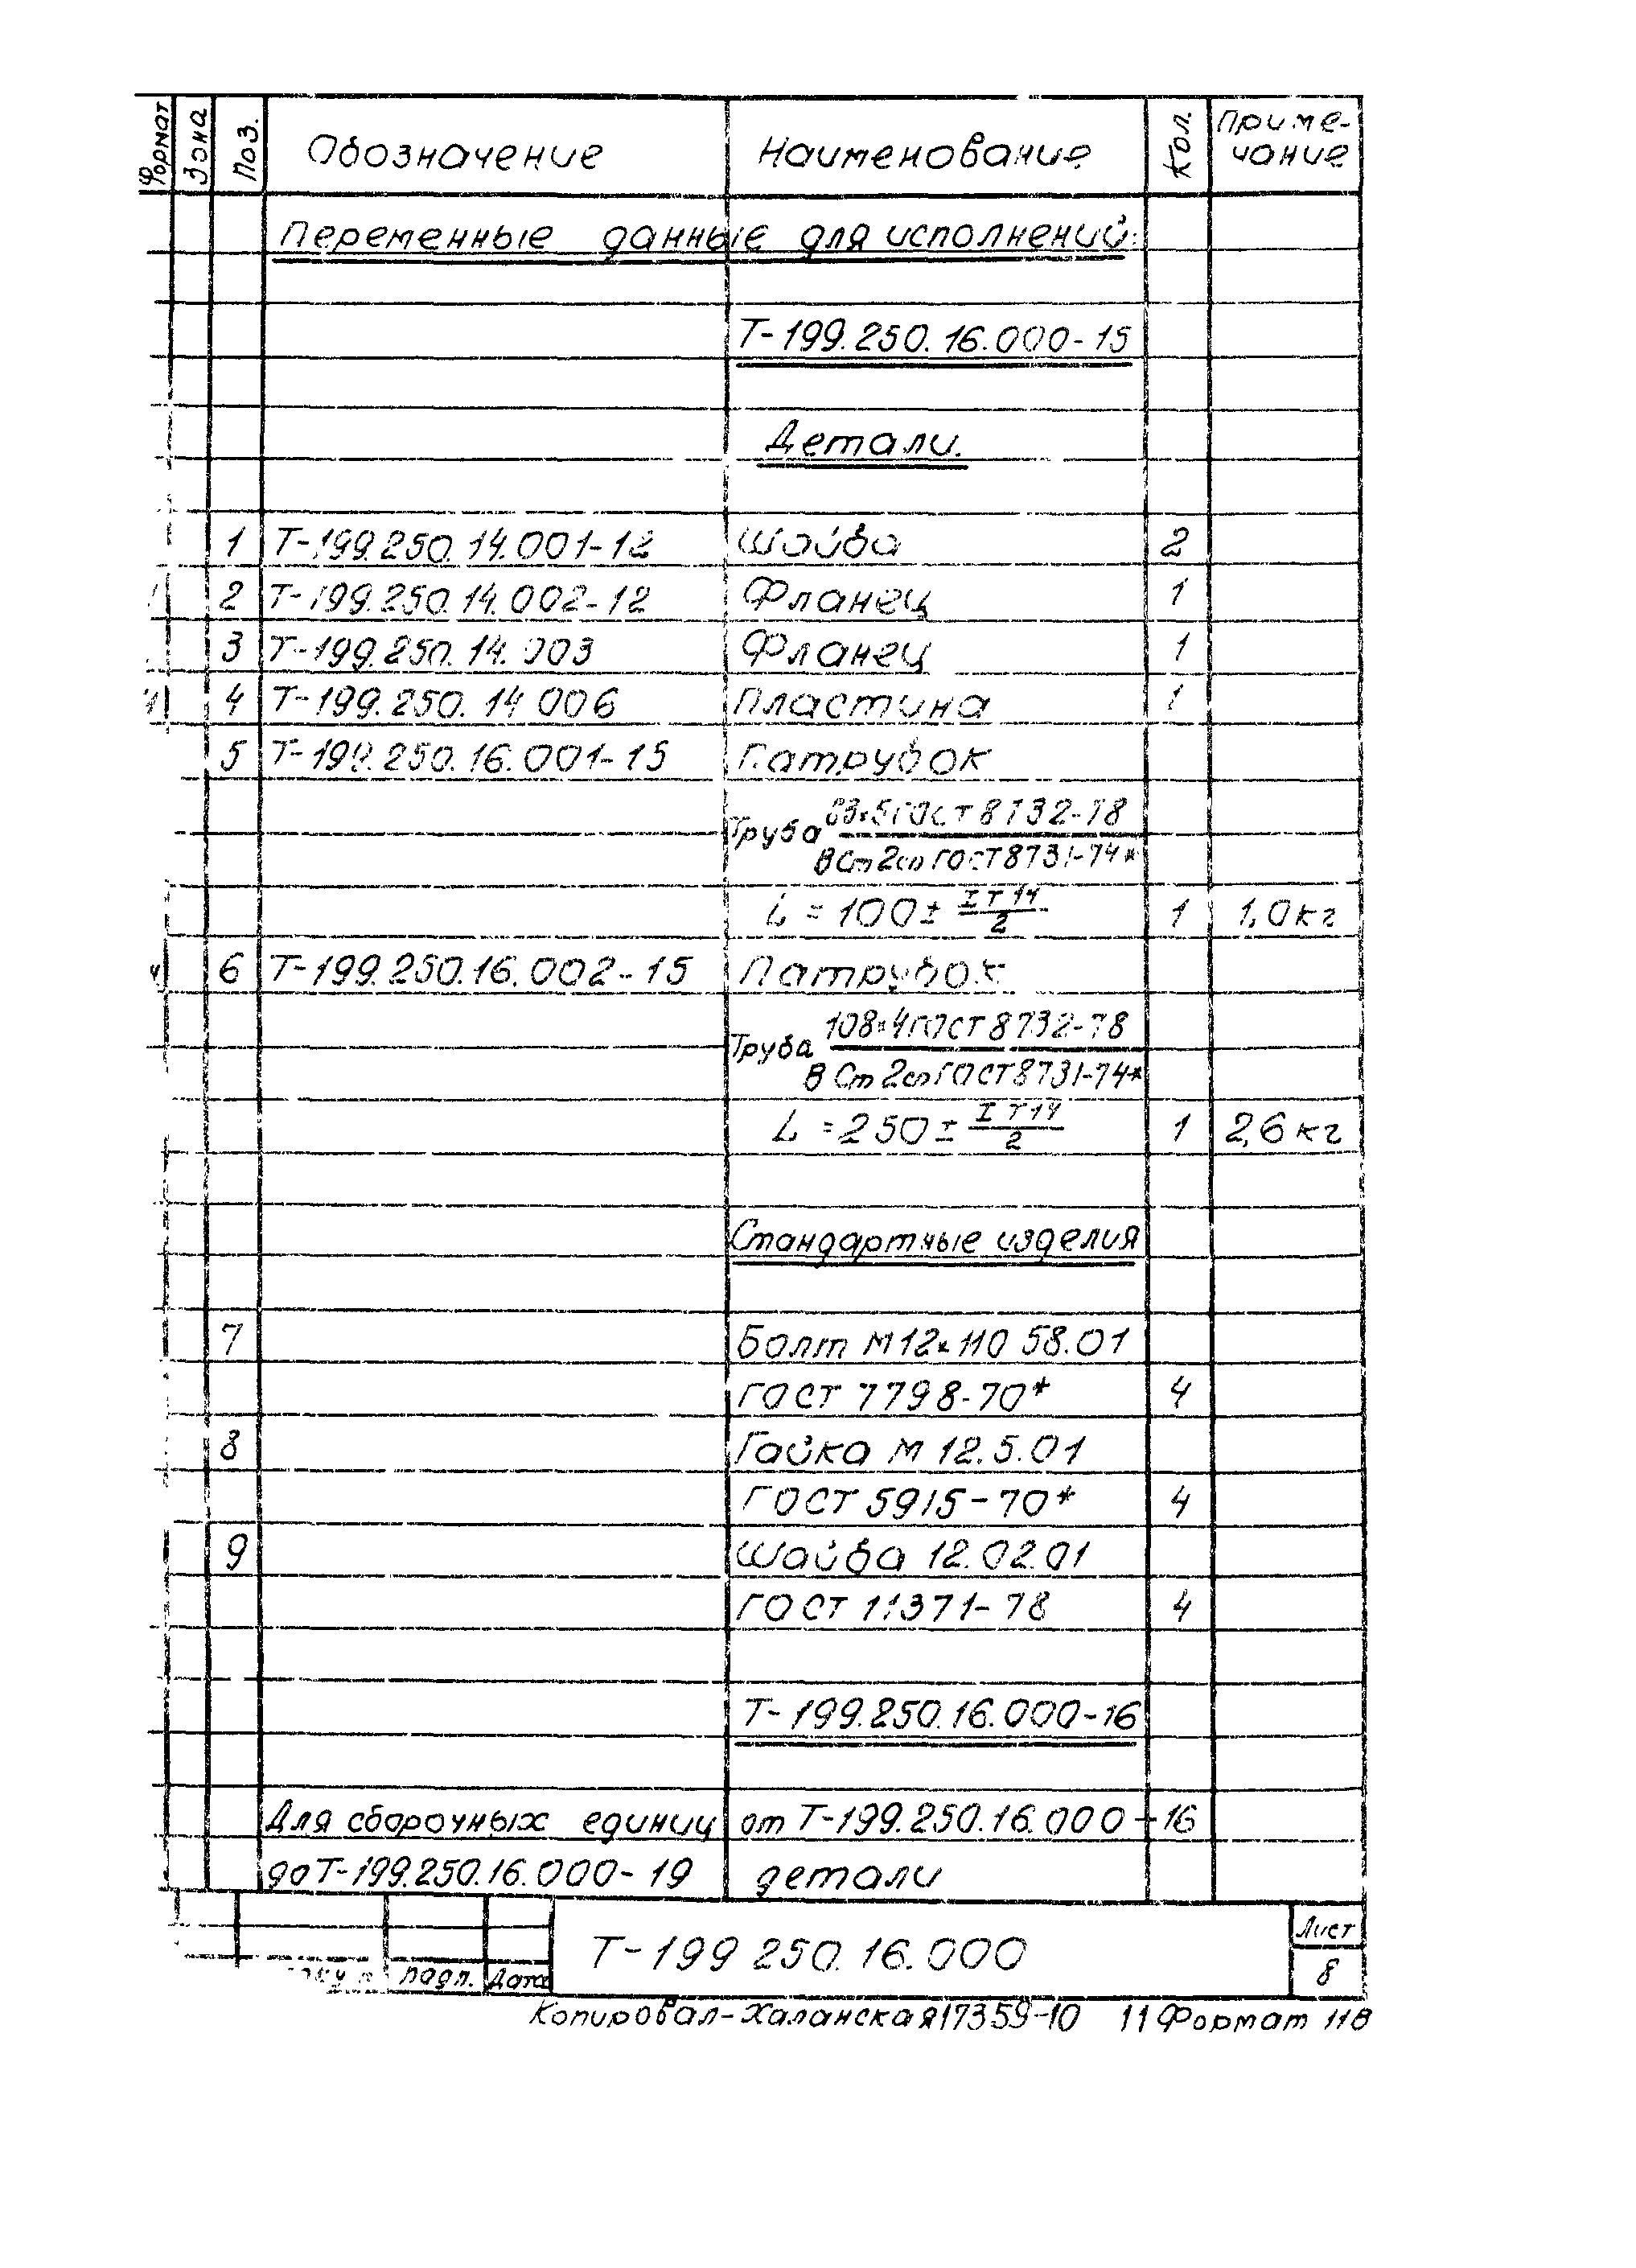 Формат Зона Поз. Обозначение Наименование Кол. Приме-
чание
Переменные данные для исполнений:
Т-199.250.16.000-15
Детали.
1 Т-199.250.14.001-12 Шайба 2
2 Т-199.250.14.002-12 Фланец 1
3 Т-199.250.14.003 Фланец 1
4 Т-199.250.14 006 Пластина 1
5 Т-199.250.16.001-15 Патрубок
Труба ГОСТ 8732-78
ВСт2сп ГОСТ 8731-74*
L = 100 ± IT14/2 1 1,0кг
6 Т-199.250.16.002-15 Патрубок
Труба 108×4 ГОСТ 8732-78
ВСт2сп ГОСТ 8731-74*
L = 250 ± IT14/2 1 2,6кг
Стандартные изделия
7 Болт М12×110 58.01
ГОСТ 7798-70* 4
8 Гайка М 12.5.01
ГОСТ 5915-70* 4
9 Шайба 12.02.01
ГОСТ 11371-78 4
Т-199.250.16.000-16
Для сборочных единиц от Т-199.250.16.000-16
до Т-199.250.16.000-19 детали
подп. Дата Т-199 250.16.000 Лист
8
Копировал-Халанская 17359-10 11 Формат 11В